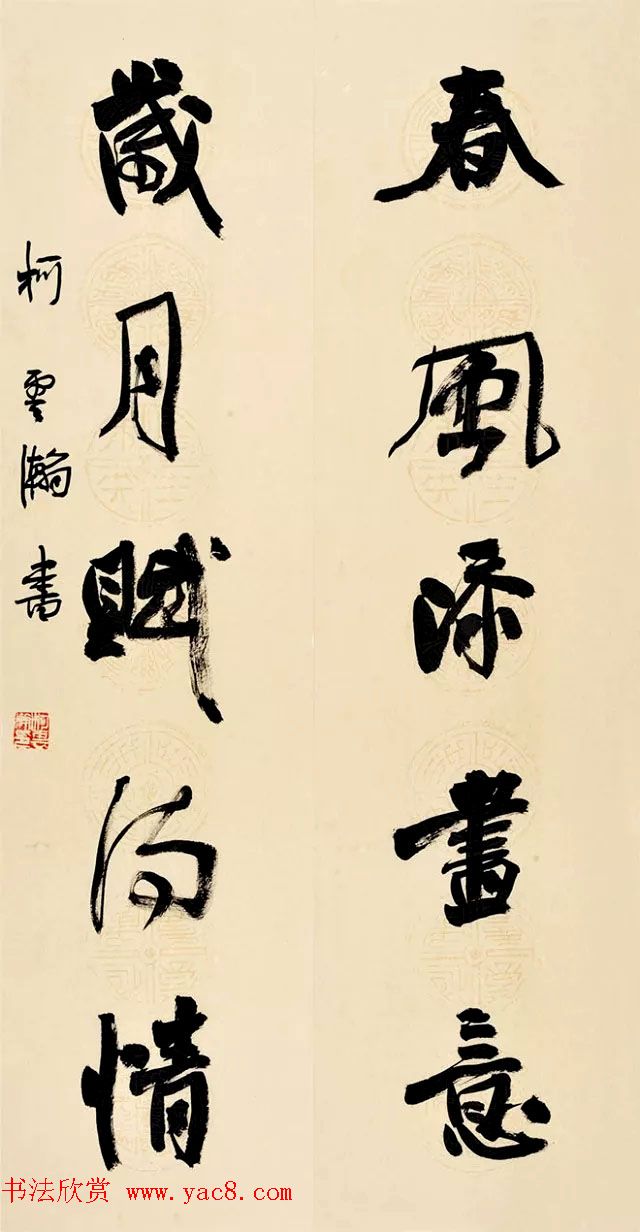 春風添畫意
歲月賦詩情
柯雲瀚書
书法欣赏 www.yac8.com